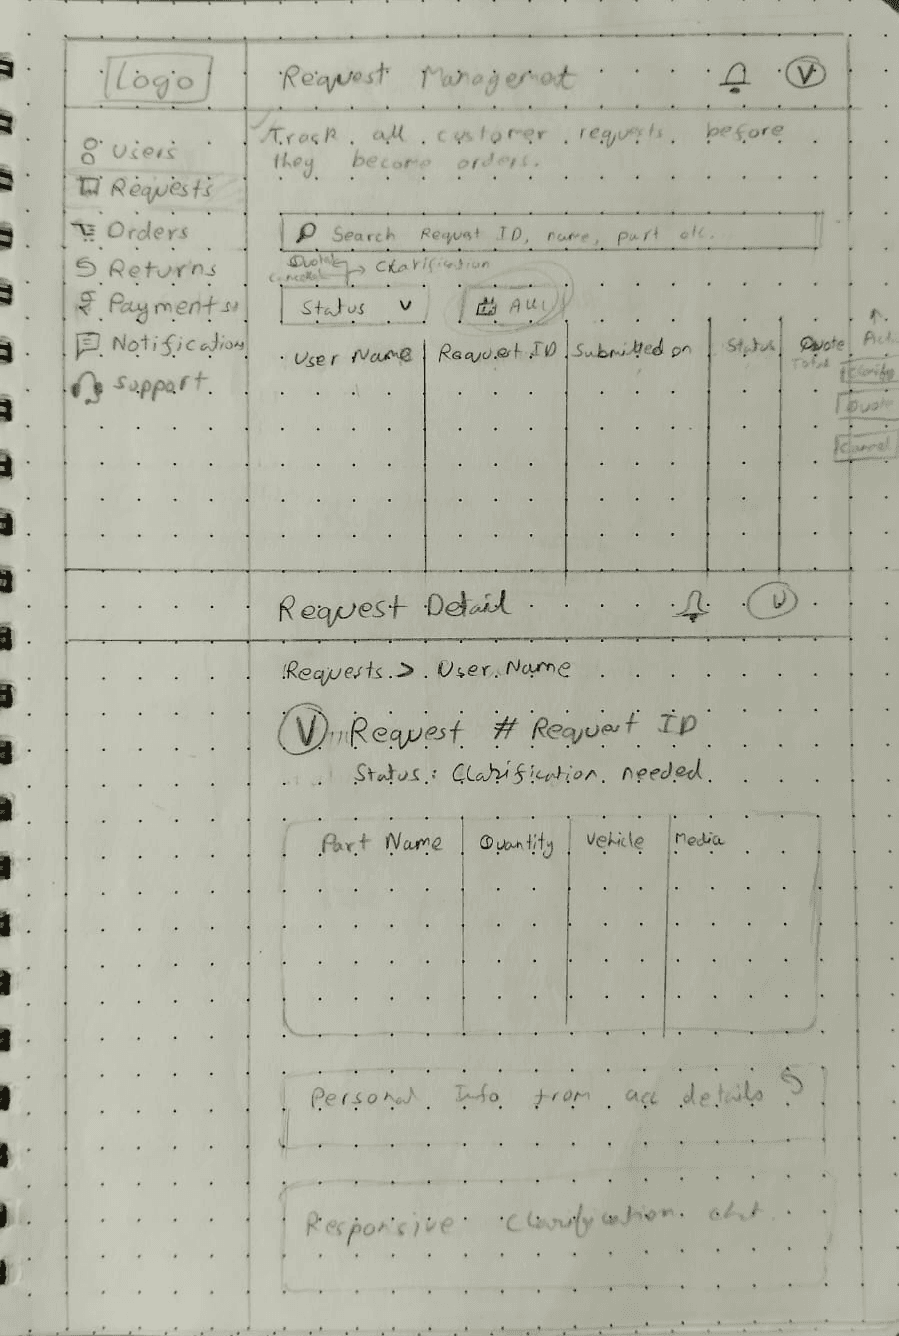 Logo
Request Managemet
V
Track all customer requests before
they become orders.
Users
Requests
Orders
Returns
Payments
Notification
Support
Search Request ID, name, part etc.
Quoted
Clarification
Status
All
User Name
Request ID
Submitted on
Status
Quote
Total
Act.
Clarify
Quote
Cancel
Request Detail
V
Requests > User Name
V
Request # Request ID
Status: Clarification needed
Part Name
Quantity
Vehicle
Media
Personal Info from acc details
Responsive Clarification chat